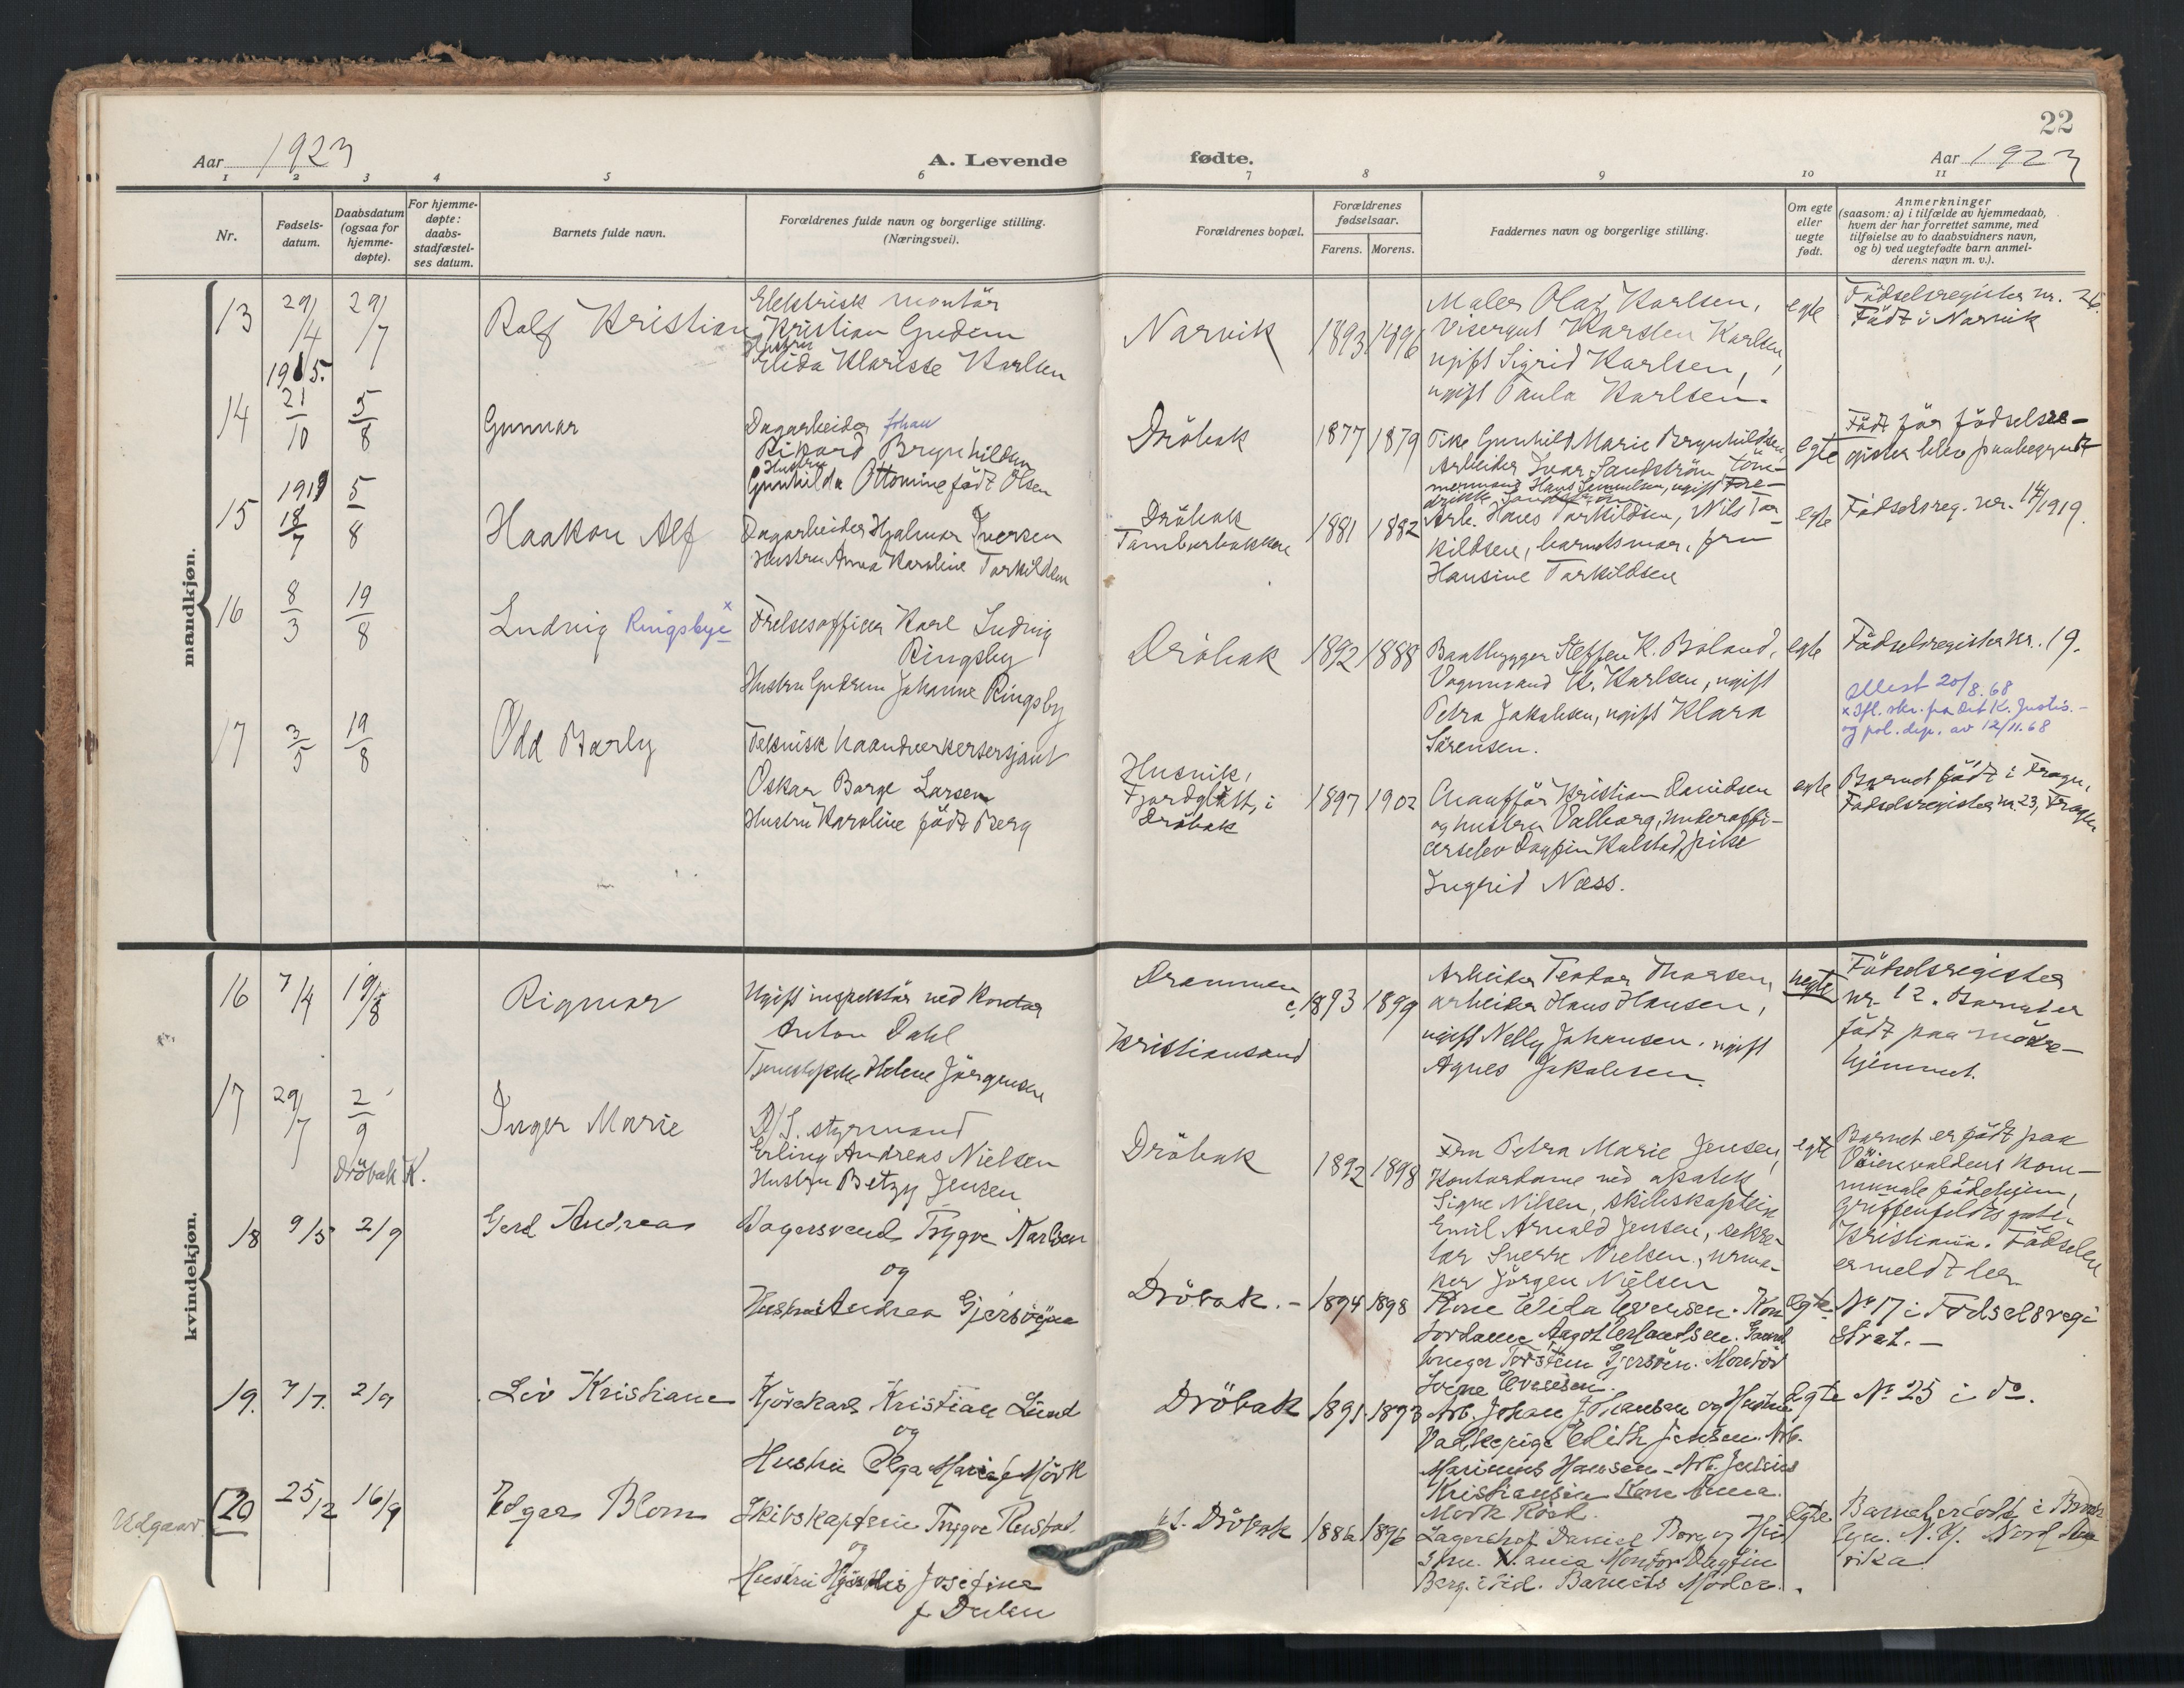 22
Aar 1923
A. Levende
fødte.
Aar 1923
1 2 3 4 5 6 7 8 9 10 11
Nr.
Fødsels-
datum.
Daabsdatum
(ogsaa for
hjemme-
døpte).
For hjemme-
døpte:
daabs-
stadfæstel-
ses datum.
Barnets fulde navn.
Forældrenes fulde navn og borgerlige stilling.
(Næringsvei).
Forældrenes bopæl.
Forældrenes
fødselsaar.
Farens. Morens.
Faddernes navn og borgerlige stilling.
Om egte
eller
uegte
født.
Anmerkninger
(saasom: a) i tilfælde av hjemmedaab,
hvem der har forrettet samme, med
tilføielse av to daabsvidners navn,
og b) ved uegtefødte barn anmel-
derens navn m. v.).
mandkjøn.
13
29/4
29/7
Rolf Kristian
Elektrisk montör
Kristian Gudem
Hustru
Elida Klarisse Karlsen
Narvik
1893 1896
Maler Olaf Karlsen,
Visergut Karsten Karlsen,
ugift Sigrid Karlsen,
ugift Paula Karlsen.
egte
Födselsregister nr. 26.
Födt i Narvik
14
1915.
21/10
5/8
Gunnar
Dagarbeider Johan
Rikard Brynhildsen
Hustru
Gunhilda Ottomine födt Olsen
Dröbak
1877 1879
Pike Gunhild Marie Brynhildsen,
Arbeider Ivar Sandström, töm-
mermand Hans Semmelsen, ugift Fre-
drikke Sandström
egte
Födt för födselsre-
gister blev paabegyndt
15
1919
18/7
5/8
Haakon Alf
Dagarbeider Hjalmar Iversen
Hustru Anna Karoline Torkildsen
Dröbak
Tamburbakken
1881 1882
Arb. Hans Torkildsen, Nils Tor-
kildsen, barnets mor, fru
Hansine Torkildsen
egte
Födselsreg. nr. 14/1919.
16
8/3
19/8
Ludvig Ringsbye x
Frelsesofficer Karl Ludvig
Ringsby
Hustru Gudrun Johanne Ringsby
Dröbak
1892 1888
Baatbygger Steffen K. Boland,
Vognmand K. Karlsen, ugift
Petra Jakobsen, ugift Klara
Sörensen.
egte
Födselsregister nr. 19.
Attest 20/8.68
x Ifl. skr. fra Det K. Justis.-
og pol. dep. av 12/11.68
17
3/5
19/8
Odd Barly
Teknisk haandverkersersjant
Oskar Borge Larsen
Hustru Karoline födt Berg
Husvik,
Fjordglött, i
Dröbak
1897 1902
Chaufför Kristian Davidsen
og hustru Valborg, underoffi-
cerselev Dagfin Kalstad, pike
Ingrid Næss.
egte
Barnet födt i Frogn,
Födselsregister nr. 23, Frogn
kvindekjøn.
16
7/4
19/8
Rigmor
Ugift inspektör ved kontor
Anton Dahl
Tjenestepike Helene Jörgensen
Drammen
Kristiansand
c. 1893 1899
Arbeider Teodor Thorsen,
arbeider Hans Hansen,
ugift Nelly Johansen. ugift
Agnes Jakobsen.
uegte
Födselsregister
nr. 12. Barnet er
födt paa mödre-
hjemmet.
17
29/7
2/9
Dröbak K.
Inger Marie
D/S. styrmand
Erling Andreas Nielsen
Hustru Betzy Jensen
Dröbak
1892 1898
Fru Petra Marie Jensen,
Kontordame ved apotek
Signe Nilsen, skibskaptein
Emil Arnold Jensen, sekre-
tær Sverre Nielsen, urma-
ker Jörgen Nielsen
egte
Barnet er födt paa
Vöienvoldens kom-
munale födehjem,
Griffenfelds gate,
Kristiania. Födselen
er meldt her.
18
9/5
2/9
Gerd Andrea
Bagersvend Trygve Karlsen
og
Hustru Andrea Gjersöyen
Dröbak. -
1894 1898
Kone Elida Evensen. Kon
tordame Aagot Erlandsen.
Torstein Gjersöen. Montör
Evensen.
Egte
No 17 i Fødselsregi
stret. -
19.
7/7.
2/9
Liv Kristiane
Kjörekarl Kristian Lund
og
Hustru Olga Marie f. Mörk
Dröbak
1891 1893
Arb. Johan J. Hansen og Hustru
Vaskepige Edith Jensen. Arb.
Marinius Hansen - Arb. Julius
Kristiansen Kone Anna
Mork Röed.
Egte
No 25 i do.
Udgaar
20
25/2
16/9
Edgar Blom
Skibskaptein Trygve Rustad.
og
Hustru Hjördis Josefine
f.
Dröbak
1886 1896
Lagerchef Daniel Borg og Hus
tru. X.ania Montör Dagfin
Berg. ibid. Barnets Moder.
Egte
Barnet er födt i Brook
lyn. N.Y. Nord Ame
rika